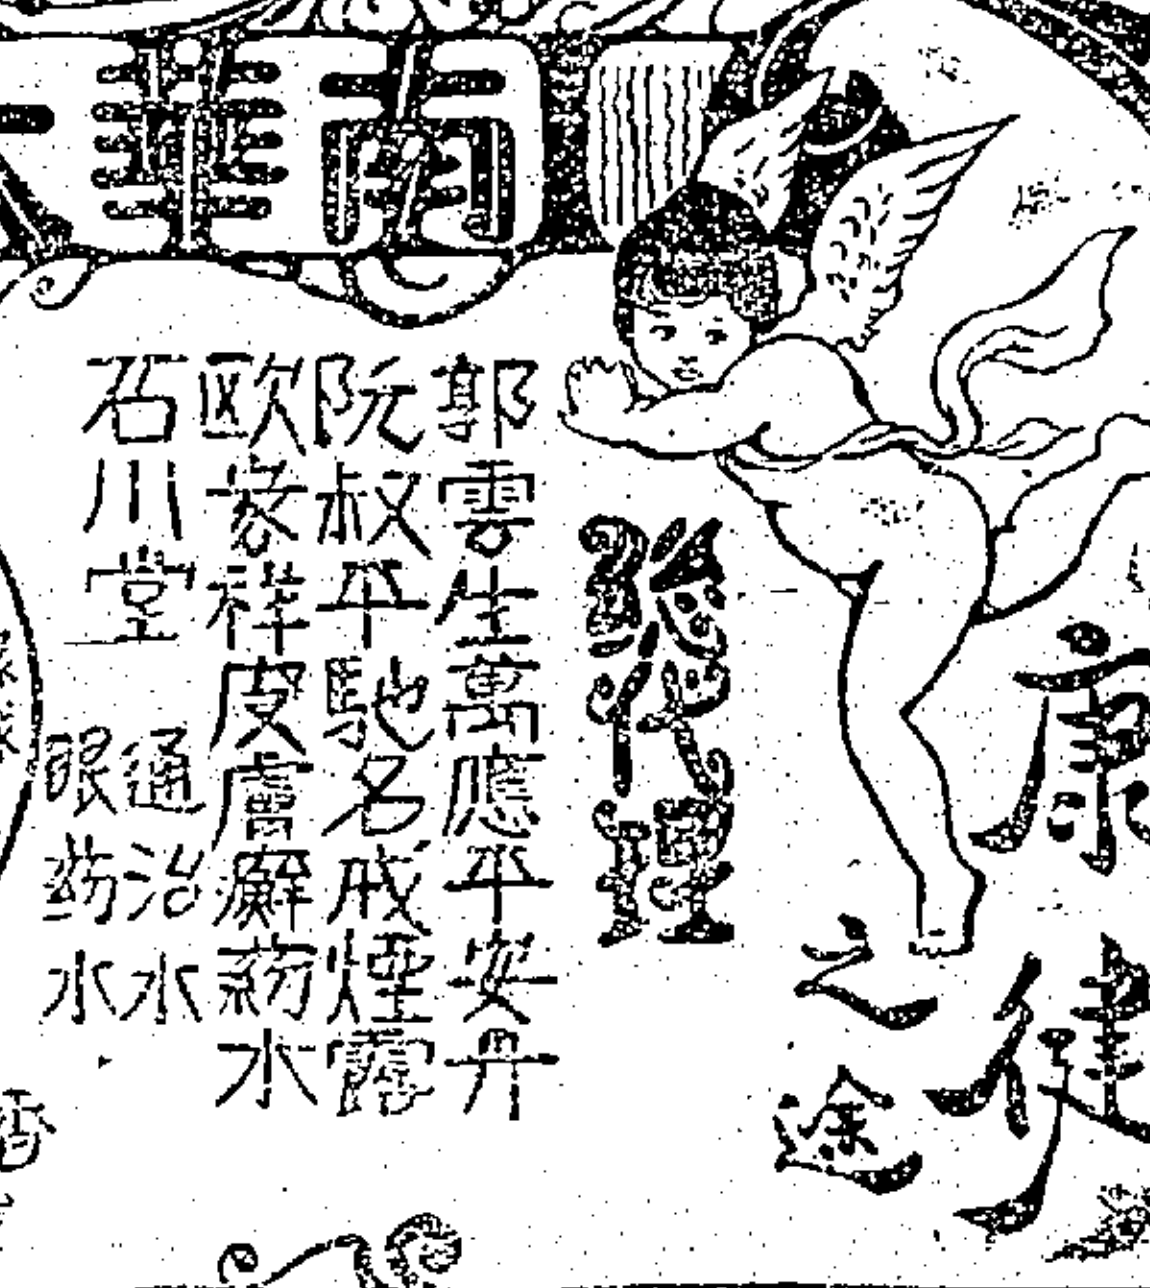 南華
康健
之途
總代理
郭雲生萬應平安丹
阮叔平馳名戒煙露
欧彖祥皮膚癬药水
石川堂
通治水
眼药水